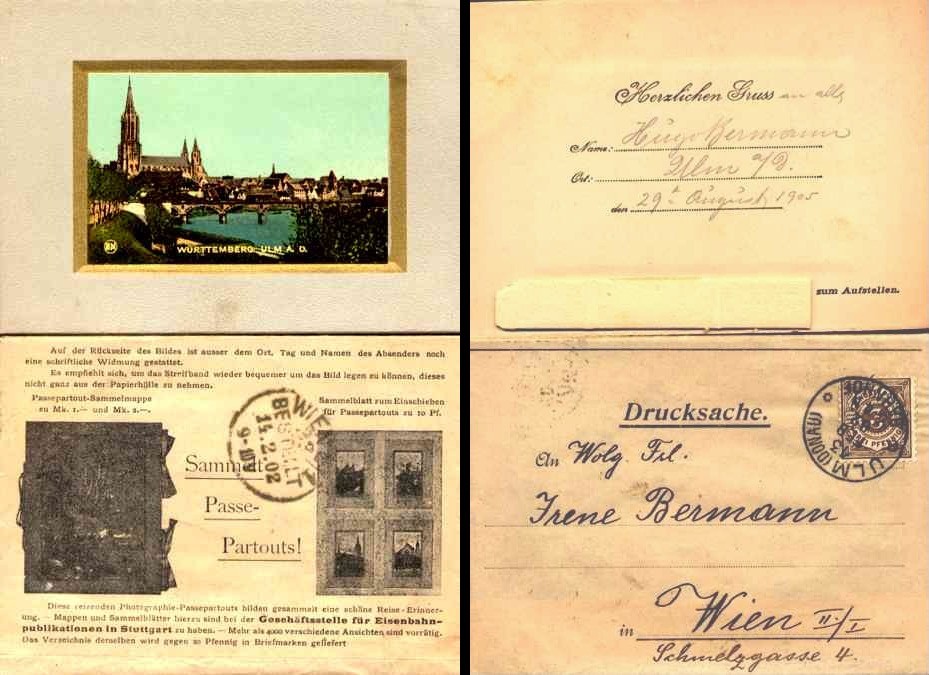 WÜRTTEMBERG: ULM A. D.
Auf der Rückseite des Bildes ist ausser dem Ort, Tag und Namen des Absenders noch
eine schriftliche Widmung gestattet.
Es empfiehlt sich, um das Streifband wieder bequemer um das Bild legen zu können, dieses
nicht ganz aus der Papierhülle zu nehmen.
Passepartout-Sammelmappe
zu Mk. 1.— und Mk. 2.—.
Sammelblatt zum Einschieben
für Passepartouts zu 10 Pf.
WIEN
BESTELLT
Sammelt
Passe-
Partouts!
Diese reizenden Photographie-Passepartouts bilden gesammelt eine schöne Reise-Erinner-
ung. — Mappen und Sammelblätter hierzu sind bei der Geschäftsstelle für Eisenbahn-
publikationen in Stuttgart zu haben. — Mehr als 4000 verschiedene Ansichten sind vorrätig.
Das Verzeichnis derselben wird gegen 10 Pfennig in Briefmarken geliefert
Herzlichen Gruss an alle
Name: Hugo Bermann
Ort: Ulm a/D.
den 29. August 1905
zum Aufstellen.
Drucksache.
ULM (DONAU)
An Wolg. Frl.
Irene Bermann
in Wien II/I
Schmelzgasse 4.